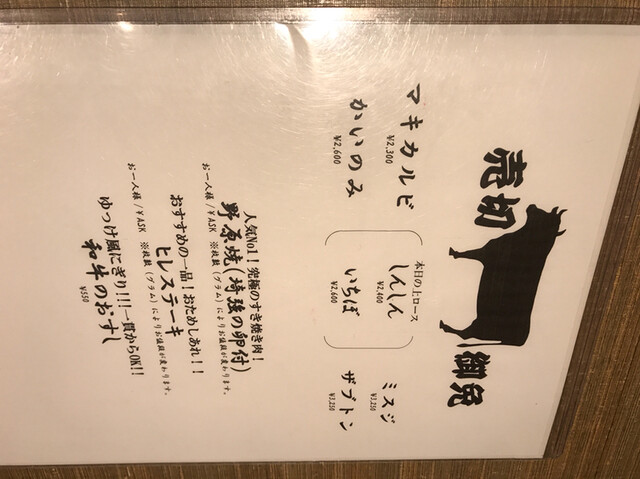 売切
御免
マキカルビ
¥2,300
かいのみ
¥2,600
本日の上ロース
しんしん
¥2,400
いちぼ
¥2,600
ミスジ
¥3,250
ザブトン
¥3,250
人気No1！究極のすき焼き肉！
野原焼(村強の卵付)
お一人様/¥ASK ※枚数(グラム)によりお値段が変わります。
おすすめの一品！おためしあれ！！
ヒレステーキ
お一人様/¥ASK ※枚数(グラム)によりお値段が変わります。
ゆっけ風にぎり！！！一貫からOK!!
和牛のおすし
¥550